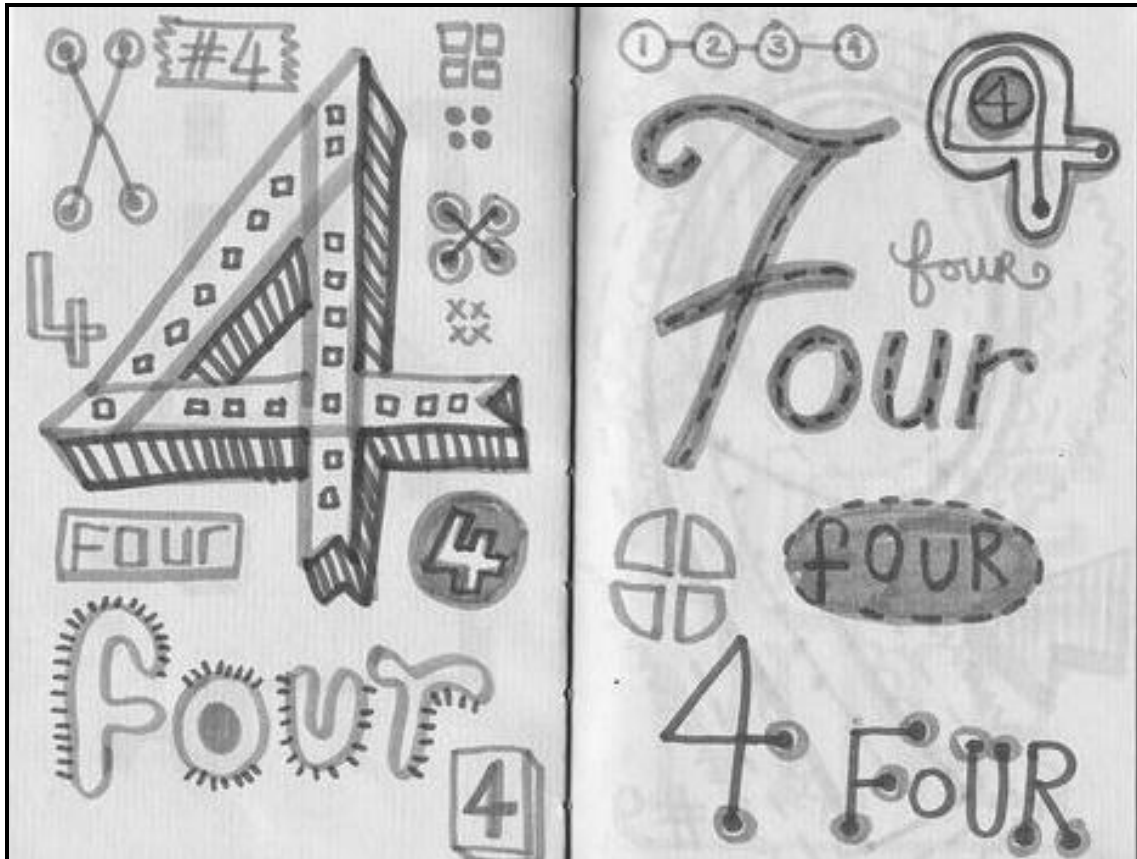 #4
4
4
FOUR
4
four
4
1 2 3 4
4
Four
four
fOUR
4 FOUR